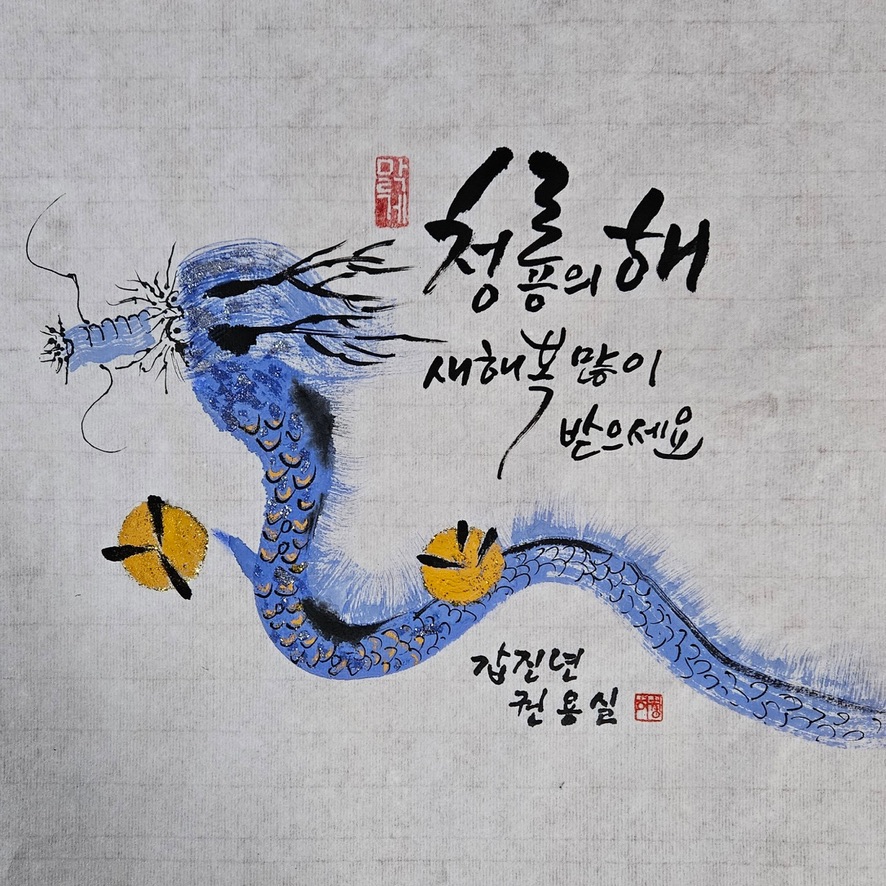 청룡의 해
새해 복 많이
받으세요
갑진년
권용실
맑게